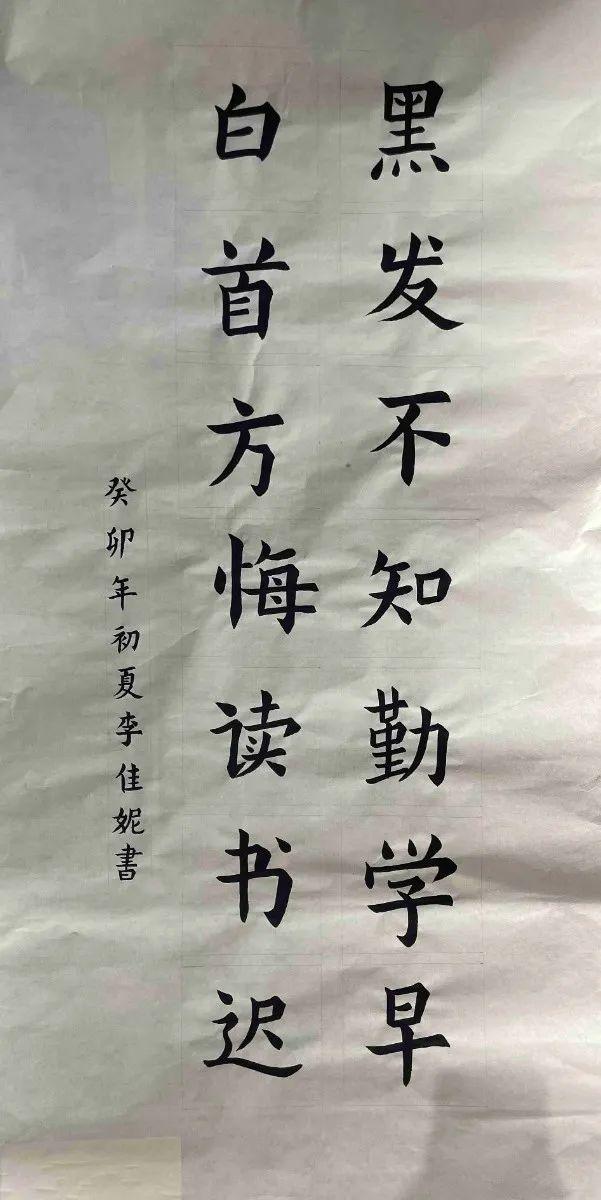 黑发不知勤学早
白首方悔读书迟
癸卯年初夏李佳妮書